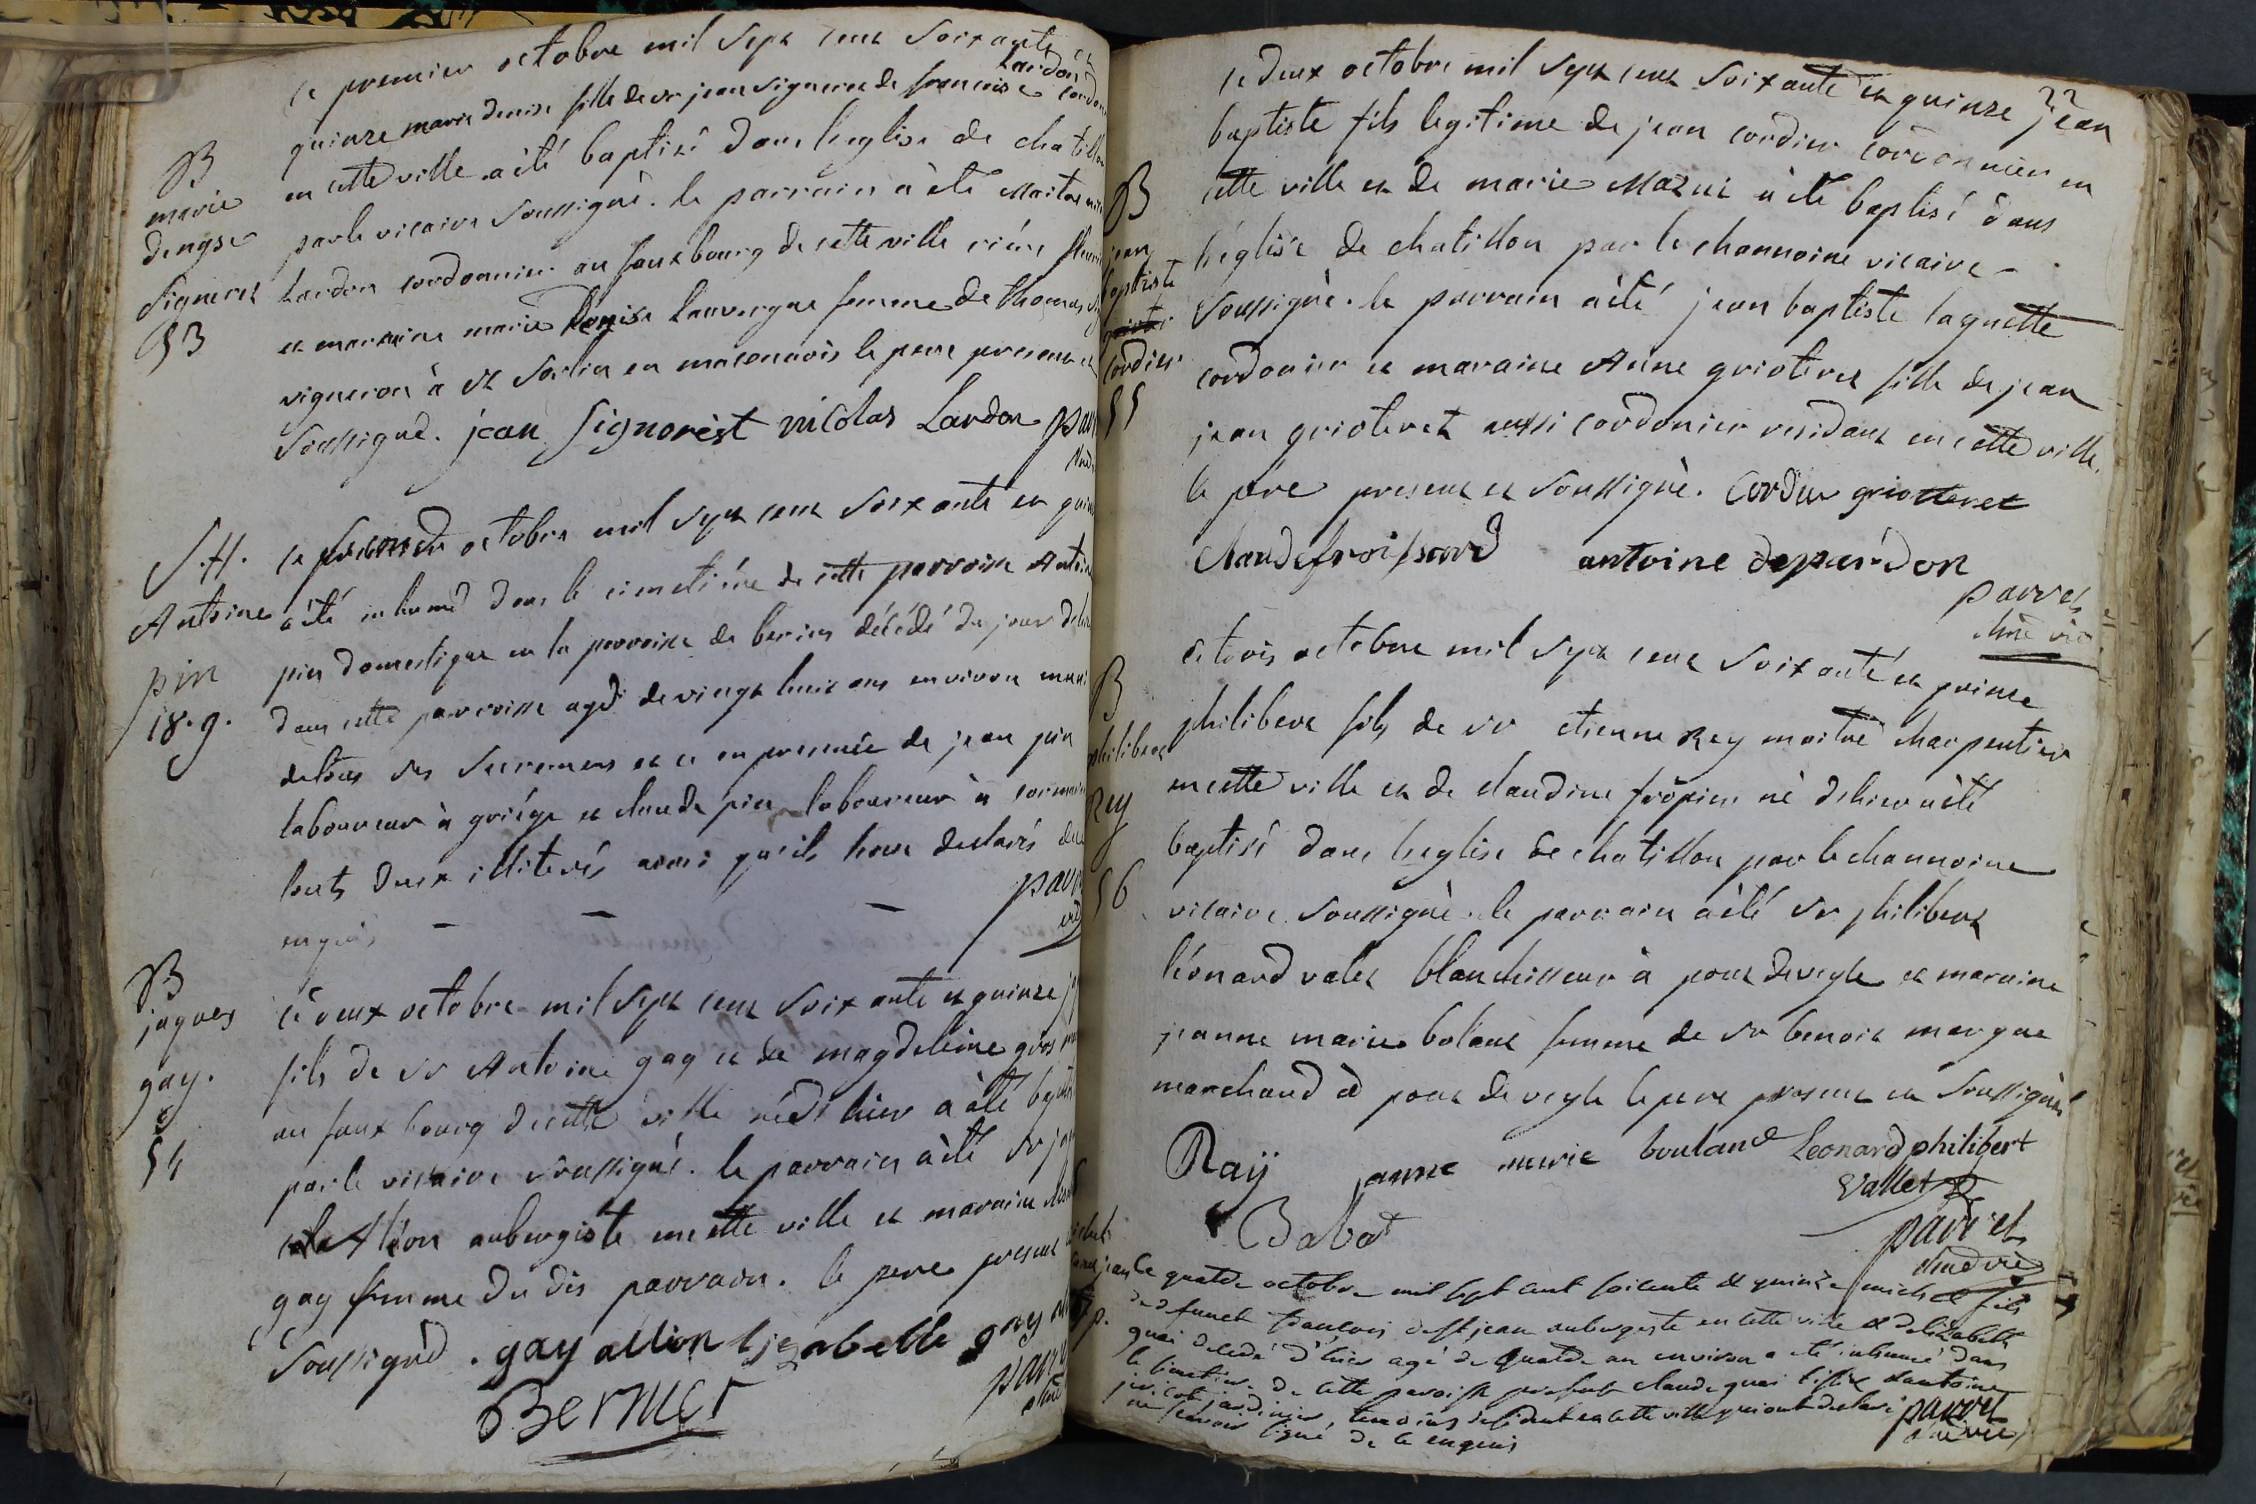 Le premier octobre mil sept cent soixante et
Lardon
quinze marie denise fille de sr jean signeret de francoise
en cette ville a été baptisé dans l'eglise de chatillon
par le vicaire soussigné. le parrain à été Maitre
Lardon cordonnier au fauxbourg de cette ville
et marraine marie Denise Lauvergne femme de thomas
vigneron à st Sorlin en maconnois le pere present et
soussigné. jean Signorest nicolas Lardon
B
marie
denyse
signeret
53
Le second octobre mil sept cent soixante et
à été inhumé dans le cimetiére de cette parroisse Antoine
pin domestique en la parroisse de decédé du jour
dans cette parroisse agé de vingt huit ans environ
de tous ses sacremens et ce en presence de jean pin
laboureur à griége et claude pin laboureur à
touts deux illiterés ainsi qu'ils l'ont declarés
enquis
S.H.
Antoine
pin
18.g.
Le deux octobre mil sept cent soixante et quinze
fils de sr Antoine gay et de magdeleine gros
au faux bourg de cette ville né d'hier à été
par le vicaire soussigné. le parrain à été sr
Aléon aubergiste en cette ville et maraine
gay femme du dit parrain. le pere present
soussigné. gay allion gay
Bernier
B
jaques
gay.
54
Le deux octobre mil sept cent soixante et quinze jean
baptiste fils legitime de jean cordier cordonnier en
cette ville et de marie Mazui à été baptisé dans
l'église de chatillon par le channoine vicaire
soussigné. le parrain à été jean baptiste laguette
cordonier et maraine Anne grioteret fille de jean
jean grioteret aussi cordonier residant en cette ville.
le pére present et soussigné. Cordier griotteret
Claude froissard antoine depardon
parret
chne vic
B
jean
baptiste
cordier
55
Le trois octobre mil sept cent soixante et quinze
philibert fils de sr etienne Rey maitre charpentier
en cette ville et de claudine fropier né d'hier à été
baptisé dans l'eglise de chatillon par le channoine
vicaire soussigné. le parrain à été sr philibert
léonard valet blanchisseur à pont de vesle et maraine
jeanne marie bolant femme de sr benoit margue
marchand à pont de vesle le pere present et soussignés
Raÿ janne marie bouland Leonard philibert
Vallet
Babad
parret
chne vic
B
philibert
Rey
56
Le quatre octobre mil sept cent soixante et quinze michel fils
de defunct francois de st jean aubergiste en cette ville et d'elizabeth
guai decedé d'hier agé de quatre an environ a été inhumé dans
le cimetiere de cette paroisse present claude guai tissier et antoine
jardinier, temoins residents en cette ville qui ont declaré
ne scavoir signé de ce enquis
parret
chne vic